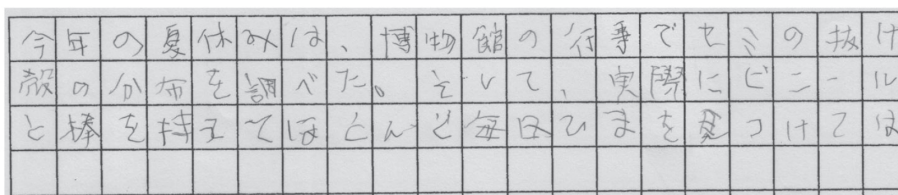 今年の夏休みは、博物館の行事でセミの抜け
殻のか布を調べた。そして、実際にビニール
と棒を持ってほとんど毎日ひまを見つけては